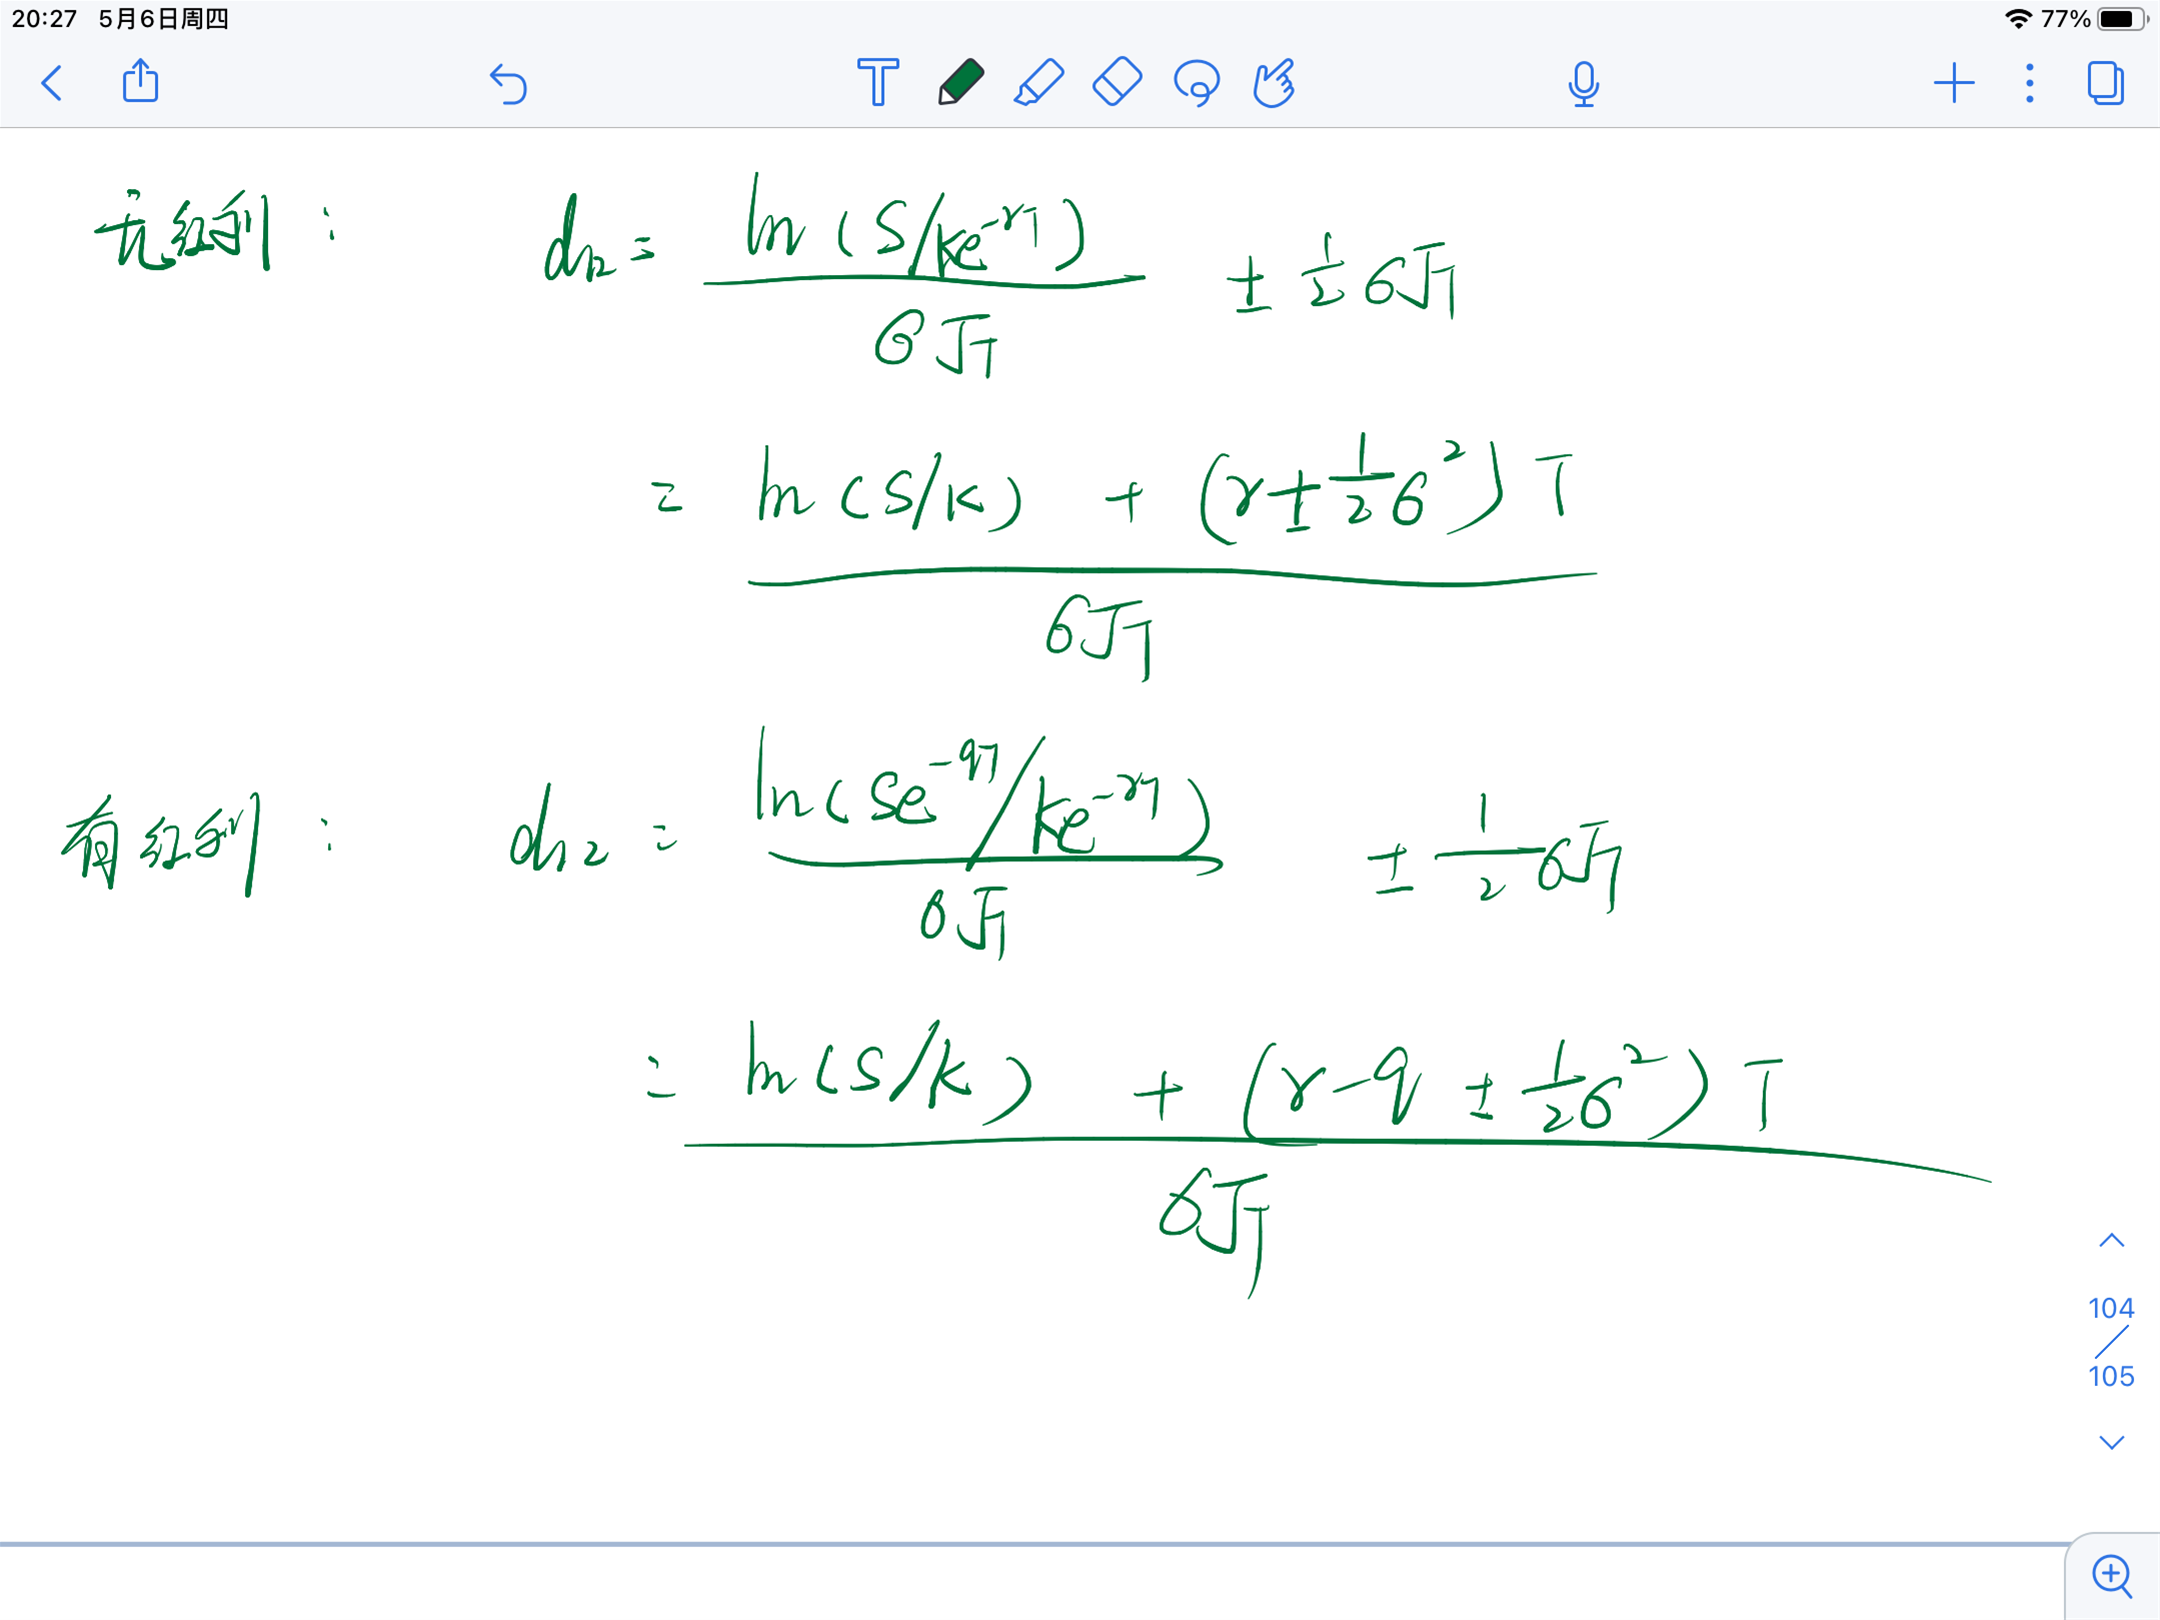 20:27 5月6日周四 77%
无红利: d₁₂ = ln(S/Ke^{-rT}) / σ√T ± 1/2 σ√T
= ln(S/K) + (r ± 1/2 σ²)T / σ√T
有红利: d₁₂ = ln(Se^{-qT}/Ke^{-rT}) / σ√T ± 1/2 σ√T
= ln(S/K) + (r - q ± 1/2 σ²)T / σ√T
104
/
105